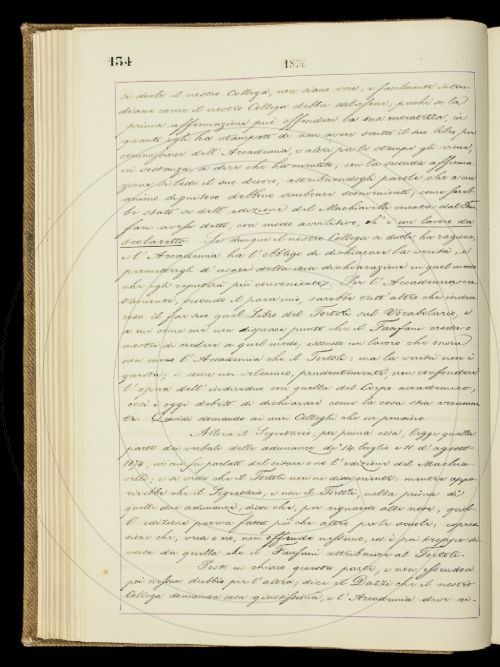 134
187
si duole il nostro Collega, non siano vere, e facilmente inten-
diamo come il nostro Collega debba dolersene, poichè se la
prima affermazione può offendere la sua onoratezza, in
quanto egli ha stampato di non avere scritto il suo libro per
commissione dell'Accademia, e altra parte stampò gli venne,
in sostanza, a dire che ha mentito; con la seconda afferma-
zione si lede il suo decoro, attribuendogli parole che a un
animo dignitoso debbono sembrare sconvenienti; come sareb-
be stato se dell'edizione del Machiavelli ancora dal Fan-
fani avesse detto, con modo avvilitivo, ch'è un lavoro da
scolaretto. Se dunque il nostro Collega si duole, ha ragione,
e l'Accademia ha l'obbligo di dichiarare la verità, e
permettergli di usare della sua dichiarazione in quel modo
che egli reputerà più conveniente. Per l'Accademia cer-
tamente, secondo il parer mio, sarebbe tutt'altro che indeco-
roso il far suo quel libro del Tortoli sul Vocabolario, e
a me come me non dispiace punto che il Fanfani creda o
mostri di credere a quel modo, essendo un lavoro che onora
non meno l'Accademia che il Tortoli: ma la verità non è
questa; e come noi volemmo, prudentemente, non confondere
l'opera dell'individuo con quella del Corpo accademico,
così è oggi debito di dichiarare come la cosa stia veramen-
te. Quindi domando ai miei Colleghi che ne pensino.
Allora il Segretario, per prima cosa, legge quella
parte dei verbali delle adunanze de' 14 luglio e 11 d'agosto
1874, in cui fu parlato del citare o no l'edizione del Machia-
velli, e si vide che il Tortoli non ne disse niente: mentre appa-
rirebbe che il Segretario, e non il Tortoli, nella prima di
quelle due adunanze, disse che, per riguardo alle note, quel-
l'edizione pareva fatta più che altro per le scuole: espres-
sione che, vera o no, non offende nessuno, ed è poi troppo di-
versa da quella che il Fanfani attribuisce al Tortoli.
Posta in chiaro questa parte, e non essendovi
poi nessun dubbio per l'altra; dice il Dazzi che il nostro
Collega domanda cosa giustissima, e l'Accademia deve ri-